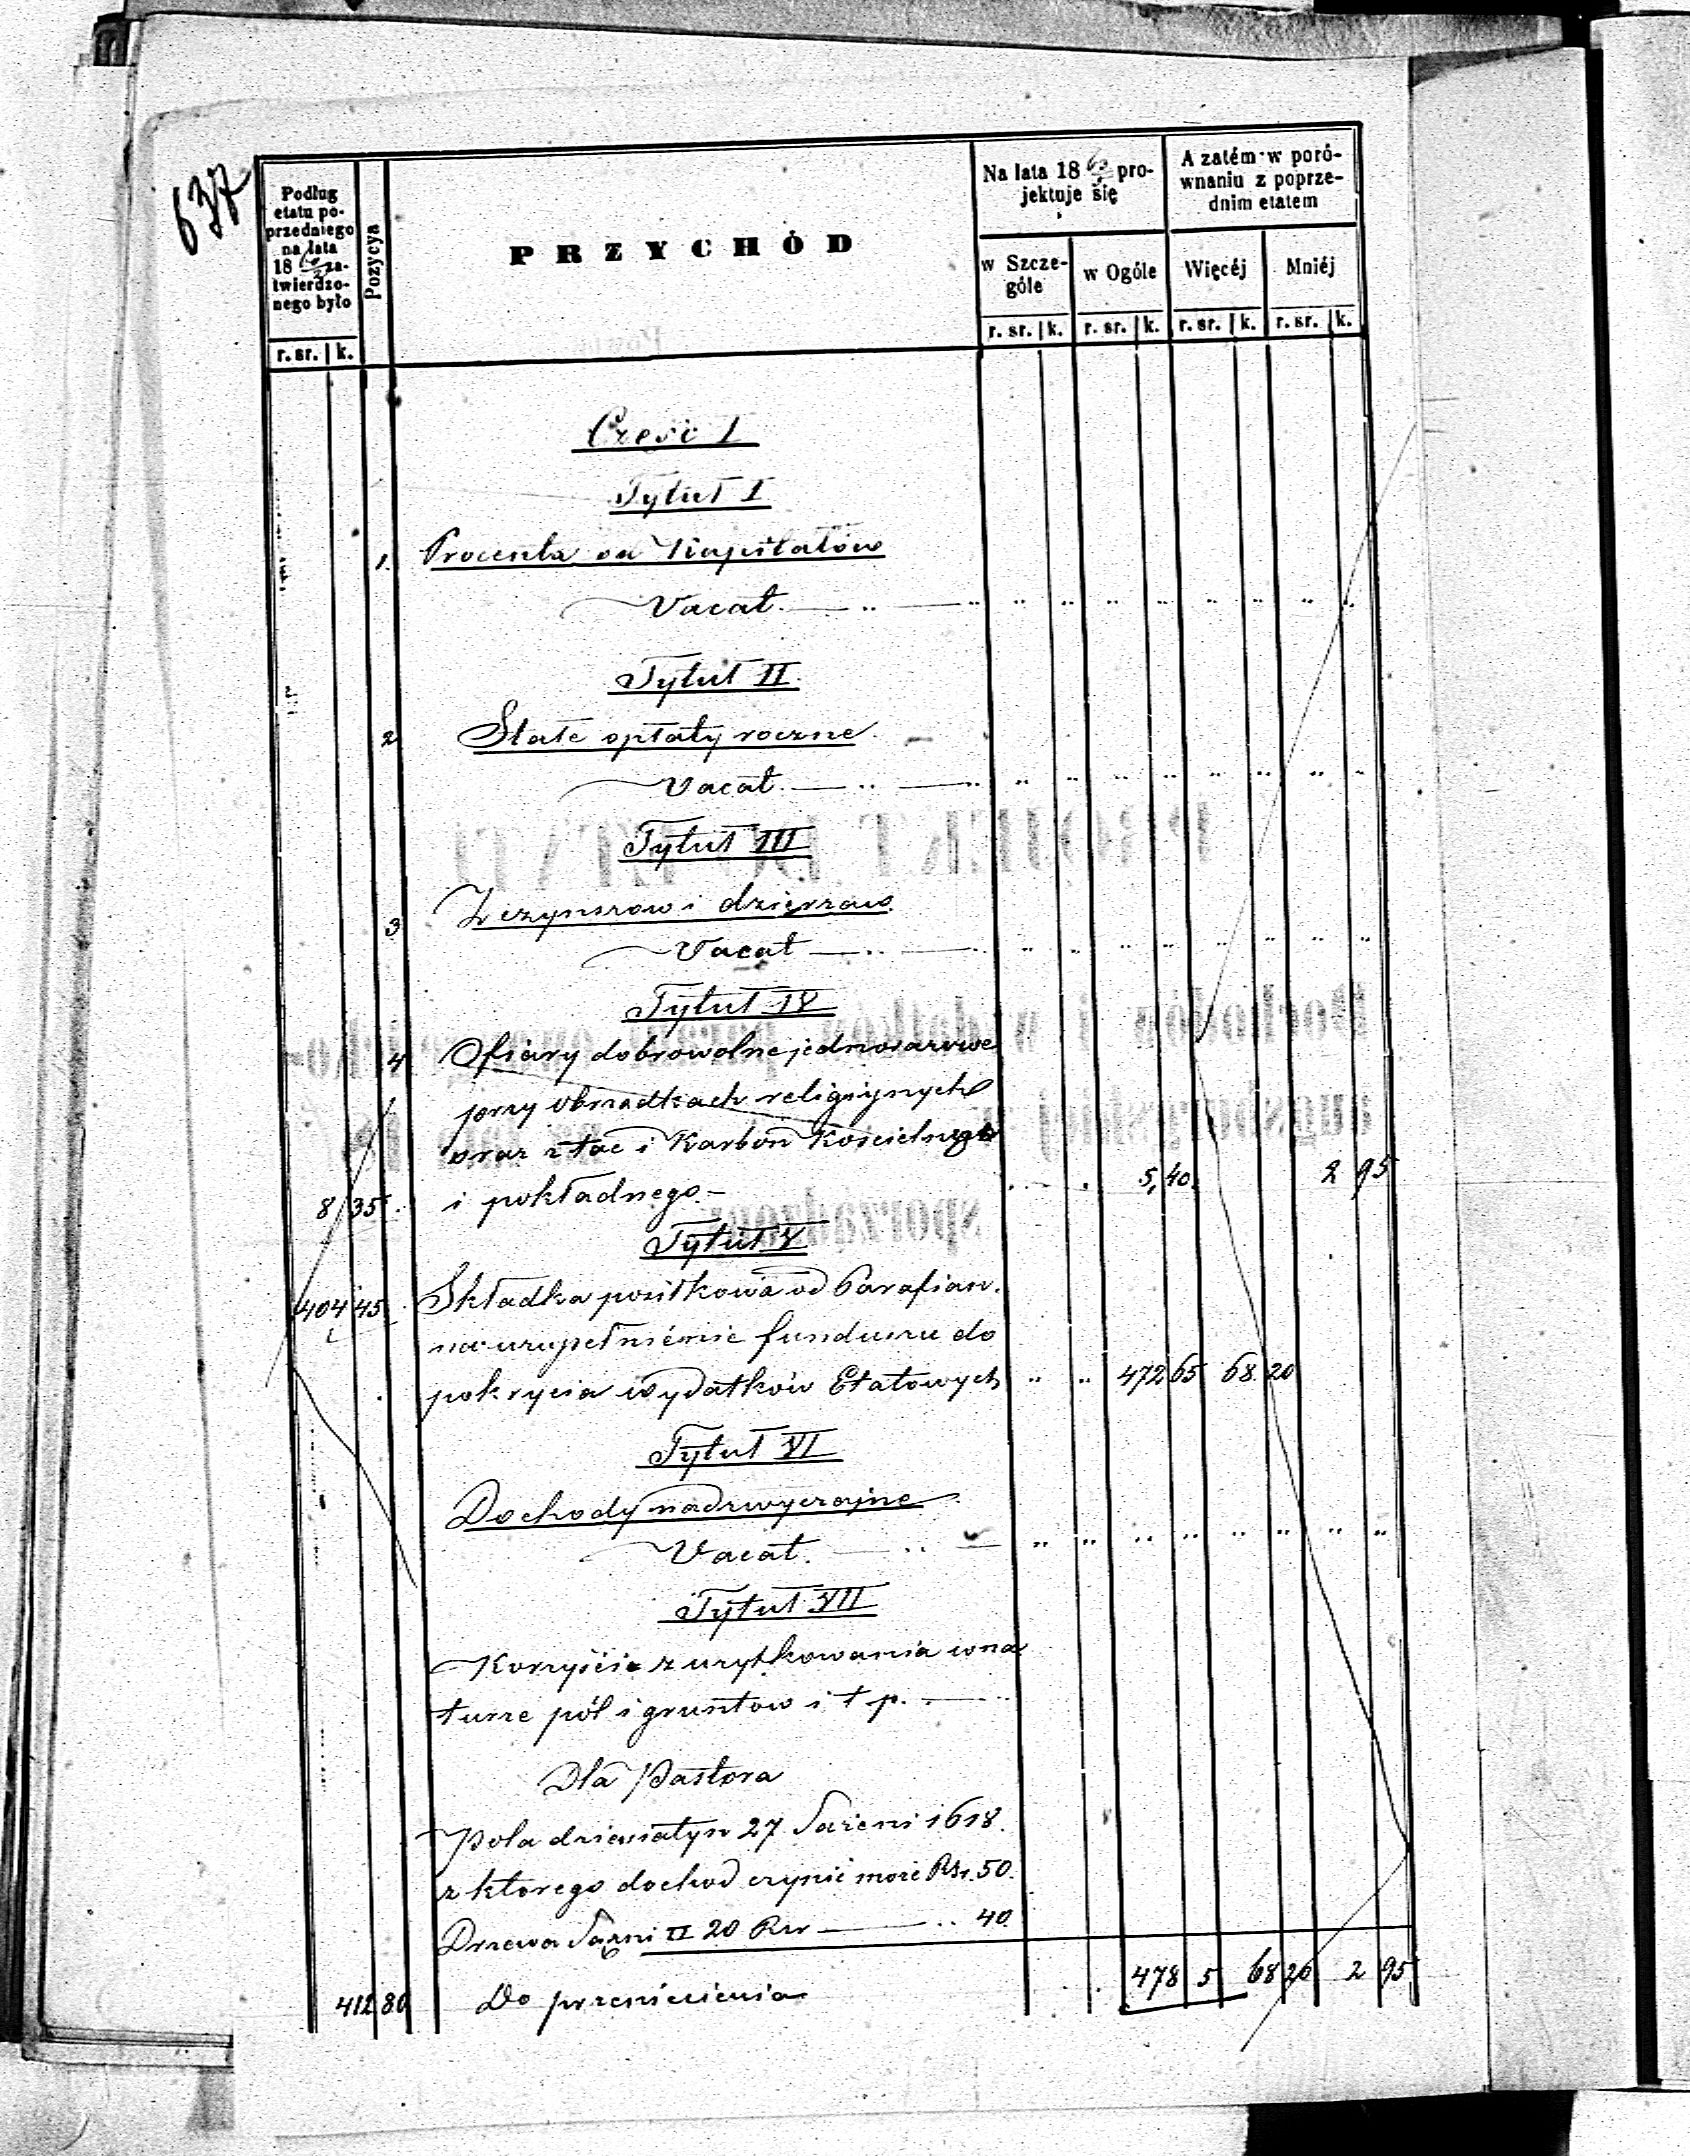 637
Podług etatu poprzedniego na lata 18 zatwierdzonego było
Pozycya
PRZYCHÓD
Na lata 18 projektuje się
A zatém w porównaniu z poprzednim etatem
w Szczególe
w Ogóle
Więcéj
Mniéj
r. sr. | k.
r. sr. | k. r. sr. | k. r. sr. | k. r. sr. | k.
Część I
Tytuł I
1. Procenta od Kapitałów
Vacat
Tytuł II
2 Stałe opłaty roczne
Vacat
Tytuł III
3 Z czynszow i dzierzaw
Vacat
Tytuł IV
4 Ofiary dobrowolne jednorazowe
przy obrzadkach religijnych
oraz z tac i Karbon Kościelnych
8 35 i pokładnego.- 5,40. 2 95
Tytuł V
404 45 Składka posiłkowa od Parafian.
na uzupełniénie funduszu do
pokrycia wydatków Etatowych 472 65 68 20
Tytuł VI
Dochody nadzwyczajne
Vacat.
Tytuł VII
Korzyści z uzytkowania w na
turze pól i gruntow i t p.
Dla Pastora
Pola dziesiatyn 27 Sażeni 1618.
z ktorego dochod czynić może Rsr. 50.
Drzewa Sążni II 20 Rsr 40
412 80 Do przeniesienia 478 5 68 20 2 95